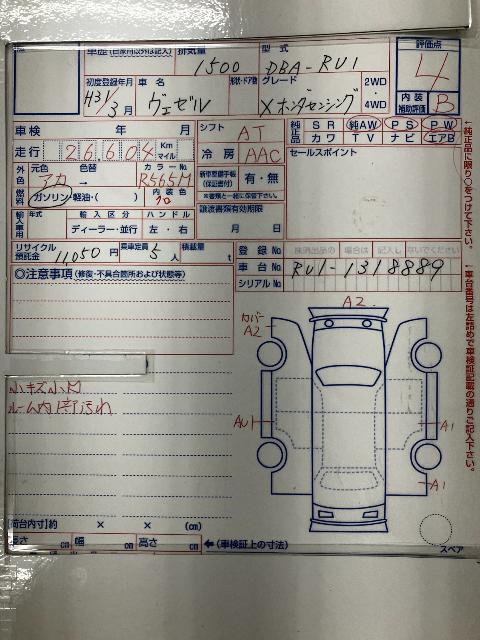 車歴(自家用以外は記入) 排気量 型式 評価点
1500 DBA-RU1 4
初度登録年月 車名 形状・ドア数 グレード 2WD・4WD 内装補助評価 B
H31/3月 ヴェゼル Xホンダセンシング
車検 年 月 シフト AT 純正品 SR 純AW PS PW
カワ TV ナビ エアB
走行 26604 Km マイル 冷房 AAC セールスポイント
外色 元色 色替 カラーNo
アカ → R565M 新車整備手帳(保証書付) 有・無
燃料 ガソリン・軽油・( ) 内装色 クロ ※書類と一緒に保管下さい。
輸入車用 年式 輸入区分 ハンドル 譲渡書類有効期限
ディーラー・並行 左・右 月 日
リサイクル預託金 11,050円 乗車定員 5人 積載量 t 登録No 抹消出品の場合は記入しないでください
◎注意事項(修復・不具合箇所および状態等) 車台No RU1-1318889
シリアルNo
A2
カバー
A2
小キズ小凹
ルーム内1部汚れ
AU
A1
A1
スペア
荷台内寸)約 × × (cm)
長さ cm 幅 cm 高さ cm ←(車検証上の寸法)
←純正品に限り○をつけて下さい。
←車台番号は左詰めで車検証記載の通りご記入下さい。